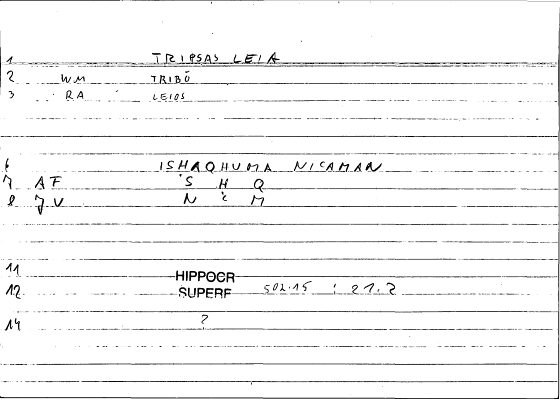 1 TRIPSAS LEIA
2 WM TRIBŌ
3 RA LEIOS
6 ISHAQHUMA NICAMAN
7 AF S H Q
8 JV N M
11 HIPPOCR
12 SUPERF 502.15 : 21.2
14 ?